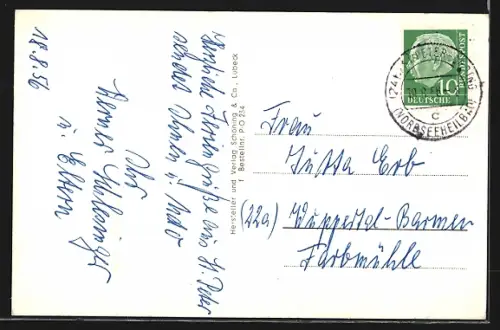 18.8.56
Herzliche Feriengrüße aus St. Peter
sendet Ihnen u.
Ihr
Werner
u. Eltern
Hersteller und Verlag Schöning & Co., Lübeck
Bestellnr. P.O 254
10
DEUTSCHE
POST
(NORDSEEHEILBAD)
c
Frau
Jutta Erb
(22a) Wuppertal-Barmen
Farbmühle